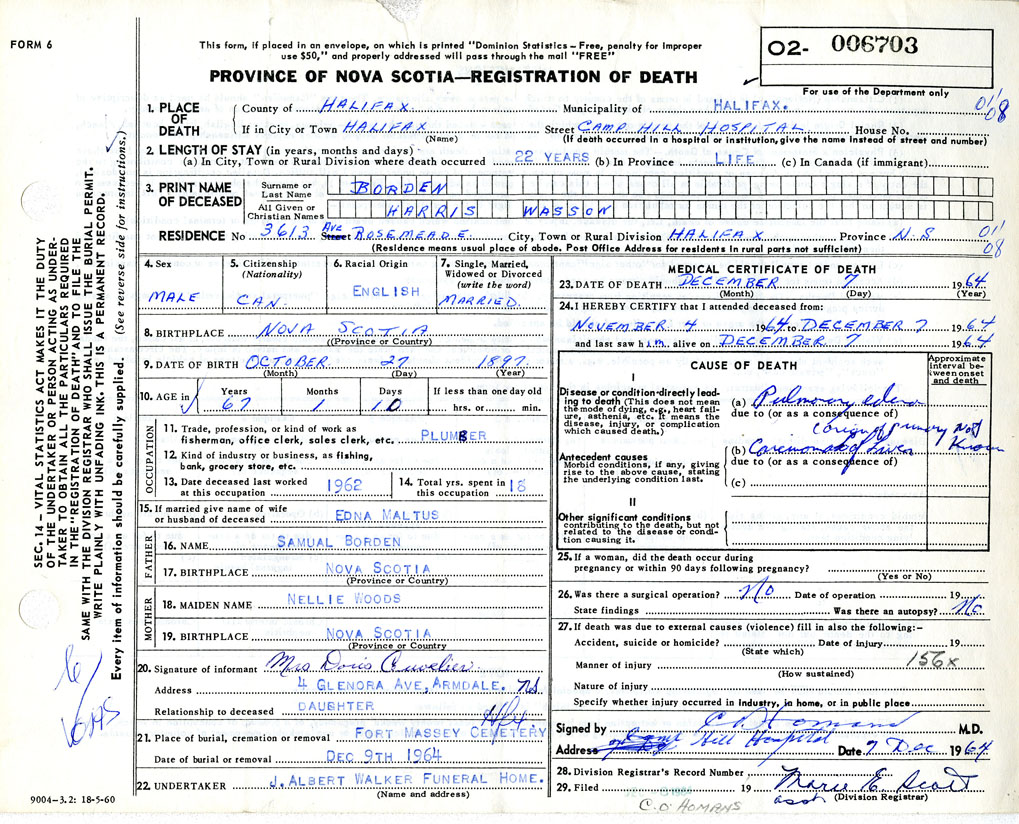 FORM 6
This form, if placed in an envelope, on which is printed "Dominion Statistics – Free, penalty for improper
use $50," and properly addressed will pass through the mail "FREE"
PROVINCE OF NOVA SCOTIA—REGISTRATION OF DEATH
02- 006703
For use of the Department only
1. PLACE OF DEATH
County of HALIFAX Municipality of HALIFAX. 01/08
If in City or Town HALIFAX Street CAMP HILL HOSPITAL House No.
(Name) (If death occurred in a hospital or institution, give the name instead of street and number)
2. LENGTH OF STAY (in years, months and days)
(a) In City, Town or Rural Division where death occurred 22 YEARS (b) In Province LIFE (c) In Canada (if immigrant)
3. PRINT NAME OF DECEASED
Surname or Last Name BORDEN
All Given or Christian Names HARRIS WASSON
RESIDENCE No 3613 Ave Street ROSEMEADE City, Town or Rural Division HALIFAX Province N.S 01/08
(Residence means usual place of abode. Post Office Address for residents in rural parts not sufficient)
4. Sex
MALE
5. Citizenship
(Nationality)
CAN.
6. Racial Origin
ENGLISH
7. Single, Married,
Widowed or Divorced
(write the word)
MARRIED.
8. BIRTHPLACE NOVA SCOTIA
((Province or Country)
9. DATE OF BIRTH OCTOBER 27 1897
(Month) (Day) (Year)
10. AGE in
Years Months Days If less than one day old
67 1 10 hrs. or min.
OCCUPATION
11. Trade, profession, or kind of work as
fisherman, office clerk, sales clerk, etc. PLUMBER
12. Kind of industry or business, as fishing,
bank, grocery store, etc.
13. Date deceased last worked
at this occupation 1962
14. Total yrs. spent in
this occupation 18
15. If married give name of wife
or husband of deceased EDNA MALTUS
FATHER
16. NAME SAMUAL BORDEN
17. BIRTHPLACE NOVA SCOTIA
(Province or Country)
MOTHER
18. MAIDEN NAME NELLIE WOODS
19. BIRTHPLACE NOVA SCOTIA
(Province or Country
20. Signature of informant Mrs Doris Cuvelier
Address 4 GLENORA AVE, ARMDALE. NS
Relationship to deceased DAUGHTER
Hfx
21. Place of burial, cremation or removal FORT MASSEY CEMETERY
Date of burial or removal DEC 9TH 1964
22. UNDERTAKER J. ALBERT WALKER FUNERAL HOME.
(Name and address)
MEDICAL CERTIFICATE OF DEATH
23. DATE OF DEATH DECEMBER 7 1964
(Month) (Day) (Year)
24. I HEREBY CERTIFY that I attended deceased from:
NOVEMBER 4 1964 to DECEMBER 7 1964
and last saw him alive on DECEMBER 7 1964
CAUSE OF DEATH
Approximate
interval be-
tween onset
and death
I
Disease or condition directly lead-
ing to death (This does not mean
the mode of dying, e.g., heart fail-
ure, asthenia, etc. It means the
disease, injury, or complication
which caused death.)
(a) Pulmonary edema
due to (or as a consequence of)
(origin of primary Not
Known
Antecedent causes
Morbid conditions, if any, giving
rise to the above cause, stating
the underlying condition last.
(b) Carcinoma of Liver
due to (or as a consequence of)
(c)
II
Other significant conditions
contributing to the death, but not
related to the disease or condi-
tion causing it.
25. If a woman, did the death occur during
pregnancy or within 90 days following pregnancy?
(Yes or No)
26. Was there a surgical operation? No Date of operation 19
State findings Was there an autopsy? No
27. If death was due to external causes (violence) fill in also the following:–
Accident, suicide or homicide? Date of injury 19
(State which)
Manner of injury 156x
(How sustained)
Nature of injury
Specify whether injury occurred in industry, in home, or in public place
Signed by C O Homans M.D.
Address Camp Hill Hospital Date 7 Dec 1964
28. Division Registrar's Record Number
29. Filed 19 Marie E Scott
asst (Division Registrar)
C. O. HOMANS
9004—3.2: 18-5-60
SEC. 14 – VITAL STATISTICS ACT MAKES IT THE DUTY
OF THE UNDERTAKER OR PERSON ACTING AS UNDER-
TAKER TO OBTAIN ALL THE PARTICULARS REQUIRED
IN THE "REGISTRATION OF DEATH" AND TO FILE THE
SAME WITH THE DIVISION REGISTRAR WHO SHALL ISSUE THE BURIAL PERMIT.
WRITE PLAINLY WITH UNFADING INK. THIS IS A PERMANENT RECORD.
Every item of information should be carefully supplied. (See reverse side for instructions.)